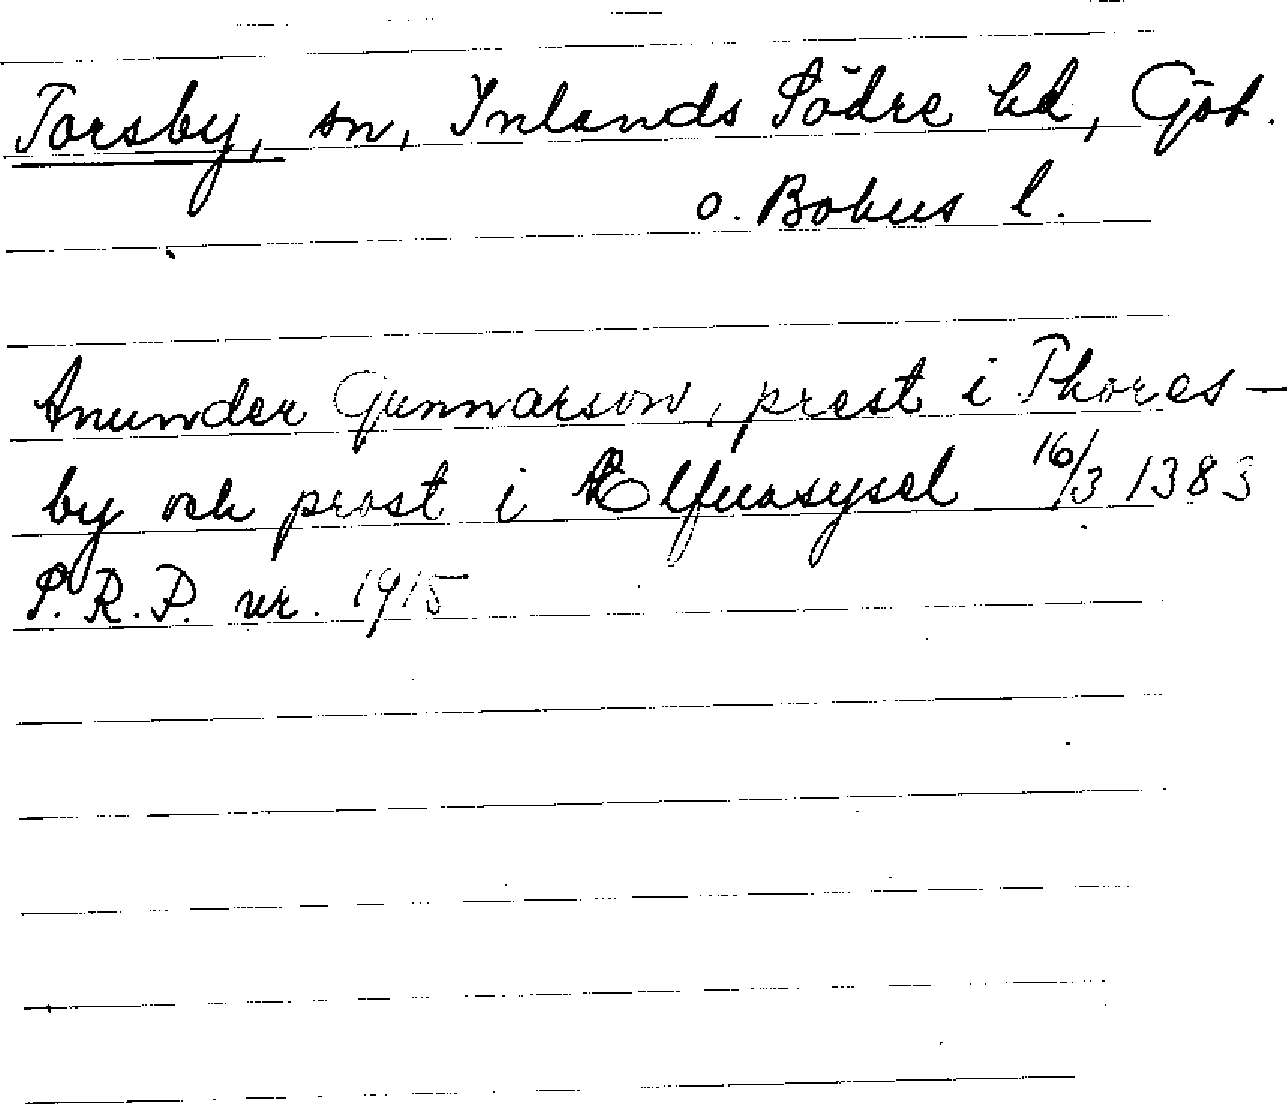 Torsby, sn, Inlands Södre hd, Göt.
o. Bohus l.
Anunder Gunnarson, prest i Thores-
by och prost i Ælfuasysel 16/3 1383
S.R.P. nr. 1915